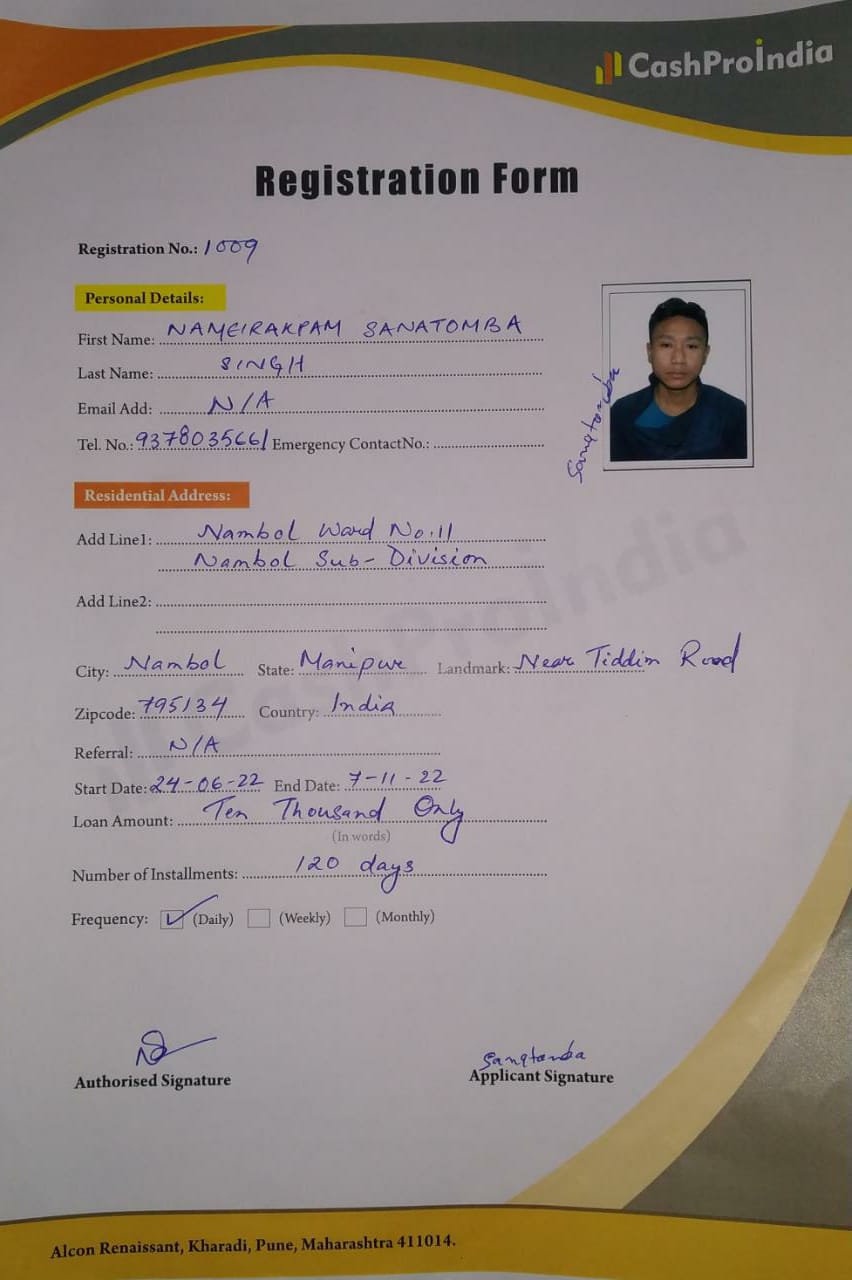 CashProIndia
Registration Form
Registration No.: 1009
Personal Details:
First Name: NAMEIRAKPAM SANATOMBA
Last Name: SINGH
Email Add: N/A
Tel. No.: 9378035661 Emergency ContactNo.:
Sanatomba
Residential Address:
Add Line1: Nambol Ward No.11
Nambol Sub-Division
Add Line2:
City: Nambol State: Manipur Landmark: Near Tiddim Road
Zipcode: 795134 Country: India
Referral: N/A
Start Date: 24-06-22 End Date: 7-11-22
Loan Amount: Ten Thousand Only
(In words)
Number of Installments: 120 days
Frequency: (Daily) (Weekly) (Monthly)
Sanatomba
Authorised Signature Applicant Signature
CashProIndia
Alcon Renaissant, Kharadi, Pune, Maharashtra 411014.